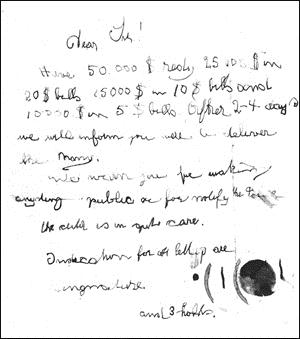 Dear Sir!
Have 50.000 $ redy 25000 $ in
20 $ bills 15000 $ in 10 $ bills and
10000 $ in 5 $ bills After 2-4 days
we will inform you were to deliver
the Mony.
We warn you for making
anyding public or for notify the
the child is in gut care.
Indication for all letters are
singnature
and 3 holds.